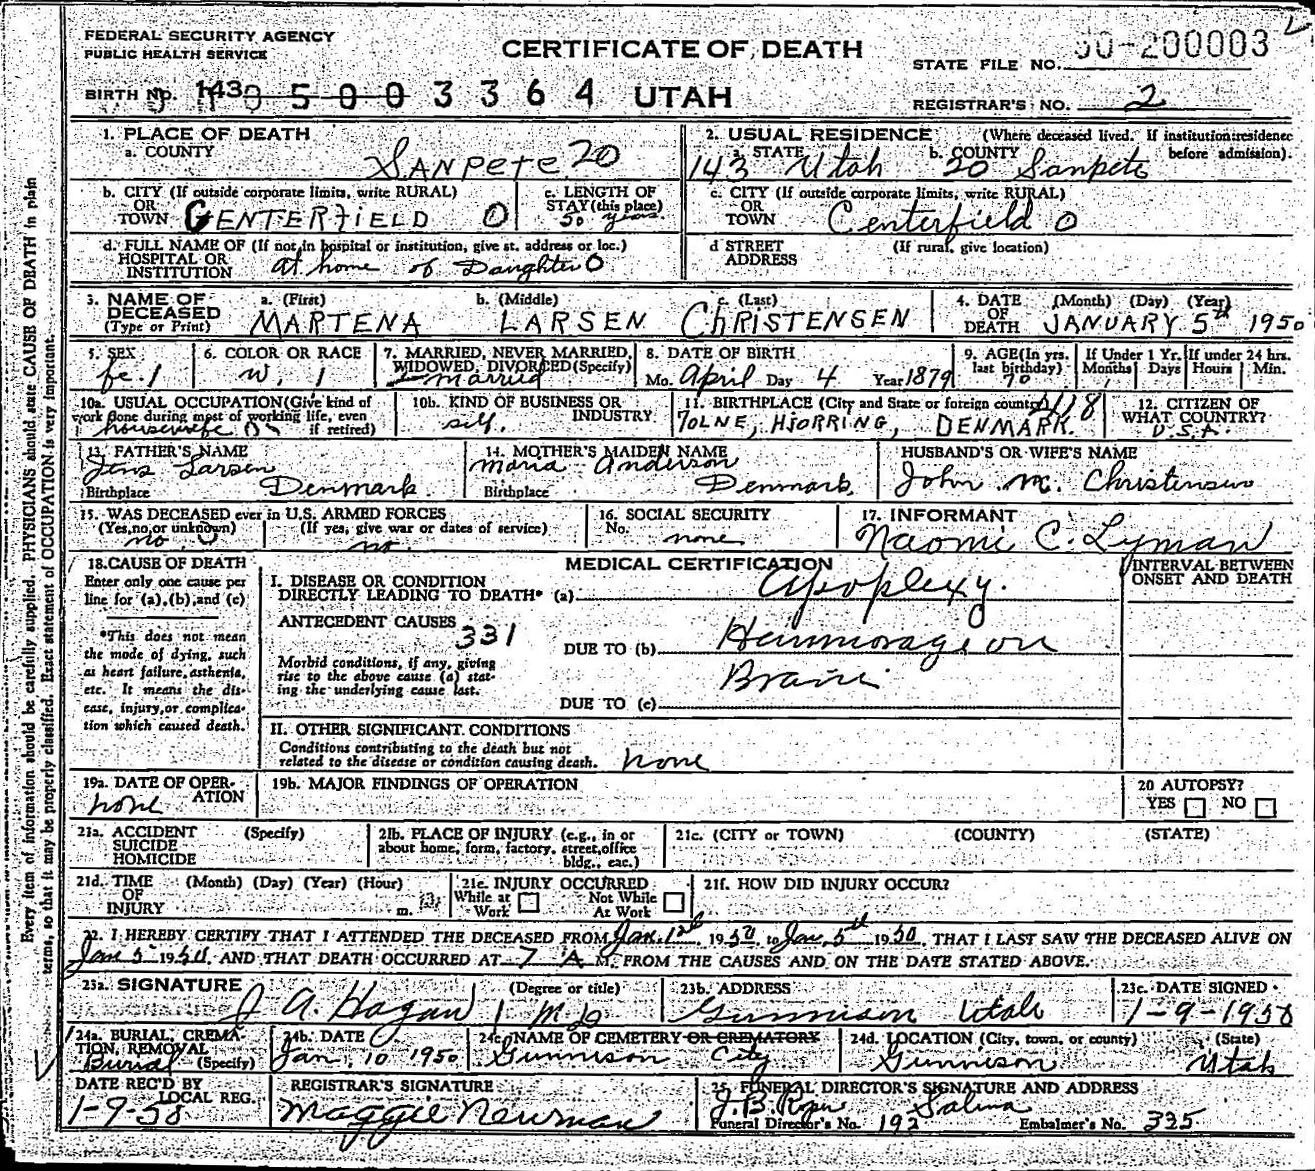 FEDERAL SECURITY AGENCY
PUBLIC HEALTH SERVICE
CERTIFICATE OF DEATH
STATE FILE NO. 50-200003
BIRTH NO. 143 0 5 0 0 0 3 3 6 4 UTAH
REGISTRAR'S NO. 2
1. PLACE OF DEATH
a. COUNTY SANPETE 20
2. USUAL RESIDENCE (Where deceased lived. If institution: residence before admission).
a. STATE 143 Utah b. COUNTY 20 Sanpete
b. CITY (If outside corporate limits, write RURAL)
OR
TOWN CENTERFIELD 0
c. LENGTH OF STAY (this place) 50 years.
c. CITY (If outside corporate limits, write RURAL)
OR
TOWN Centerfield 0
d. FULL NAME OF (If not in hospital or institution, give st. address or loc.)
HOSPITAL OR
INSTITUTION At home of Daughter 0
d STREET ADDRESS (If rural, give location)
3. NAME OF DECEASED (Type or Print)
a. (First) MARTENA b. (Middle) LARSEN c. (Last) CHRISTENSEN
4. DATE OF DEATH (Month) (Day) (Year) JANUARY 5th 1950
5. SEX fe 1
6. COLOR OR RACE W. 1
7. MARRIED, NEVER MARRIED, WIDOWED, DIVORCED (Specify) married
8. DATE OF BIRTH
Mo. April Day 4 Year 1879
9. AGE (In yrs. last birthday) 70
If Under 1 Yr. Months Days
If under 24 hrs. Hours Min.
10a. USUAL OCCUPATION (Give kind of work done during most of working life, even if retired) housewife
10b. KIND OF BUSINESS OR INDUSTRY self.
11. BIRTHPLACE (City and State or foreign country) TOLNE, HJORRING, DENMARK.
12. CITIZEN OF WHAT COUNTRY? U.S.A.
13. FATHER'S NAME Jens Larsen
Birthplace Denmark
14. MOTHER'S MAIDEN NAME Maria Anderson
Birthplace Denmark
HUSBAND'S OR WIFE'S NAME
John M. Christensen
15. WAS DECEASED ever in U.S. ARMED FORCES
(Yes, no, or unknown) no. (If yes, give war or dates of service) no.
16. SOCIAL SECURITY
No. none
17. INFORMANT
Naomi C. Lyman
18. CAUSE OF DEATH
Enter only one cause per line for (a), (b), and (c)
*This does not mean the mode of dying, such as heart failure, asthenia, etc. It means the disease, injury, or complication which caused death.
MEDICAL CERTIFICATION
INTERVAL BETWEEN ONSET AND DEATH
I. DISEASE OR CONDITION
DIRECTLY LEADING TO DEATH* (a) Apoplexy.
ANTECEDENT CAUSES 331
DUE TO (b) Hemmorage on
Morbid conditions, if any, giving rise to the above cause (a) stating the underlying cause last.
Brain
DUE TO (c)
II. OTHER SIGNIFICANT CONDITIONS
Conditions contributing to the death but not related to the disease or condition causing death. none
19a. DATE OF OPERATION none
19b. MAJOR FINDINGS OF OPERATION
20 AUTOPSY?
YES NO
21a. ACCIDENT (Specify)
SUICIDE
HOMICIDE
21b. PLACE OF INJURY (e.g., in or about home, form, factory, street, office bldg., eac.)
21c. (CITY or TOWN) (COUNTY) (STATE)
21d. TIME OF INJURY (Month) (Day) (Year) (Hour) m.
21e. INJURY OCCURRED
While at Work Not While At Work
21f. HOW DID INJURY OCCUR?
22. I HEREBY CERTIFY THAT I ATTENDED THE DECEASED FROM Jan. 1st, 1950, to Jan. 5th 1950, THAT I LAST SAW THE DECEASED ALIVE ON
Jan 5 1950, AND THAT DEATH OCCURRED AT 7 A M. FROM THE CAUSES AND ON THE DATE STATED ABOVE.
23a. SIGNATURE J A. Hagan (Degree or title) M D
23b. ADDRESS Gunnison Utah
23c. DATE SIGNED 1-9-1950
24a. BURIAL, CREMATION, REMOVAL (Specify) Burial
24b. DATE Jan. 10 1950
24c. NAME OF CEMETERY OR CREMATORY Gunnison City
24d. LOCATION (City, town, or county) (State) Gunnison Utah
DATE REC'D BY LOCAL REG. 1-9-50
REGISTRAR'S SIGNATURE
Maggie Newman
25. FUNERAL DIRECTOR'S SIGNATURE AND ADDRESS
J. B. Salina
Funeral Director's No. 192 Embalmer's No. 335
Every item of information should be carefully supplied. PHYSICIANS should state CAUSE OF DEATH in plain
terms, so that it may be properly classified. Exact statement of OCCUPATION is very important.